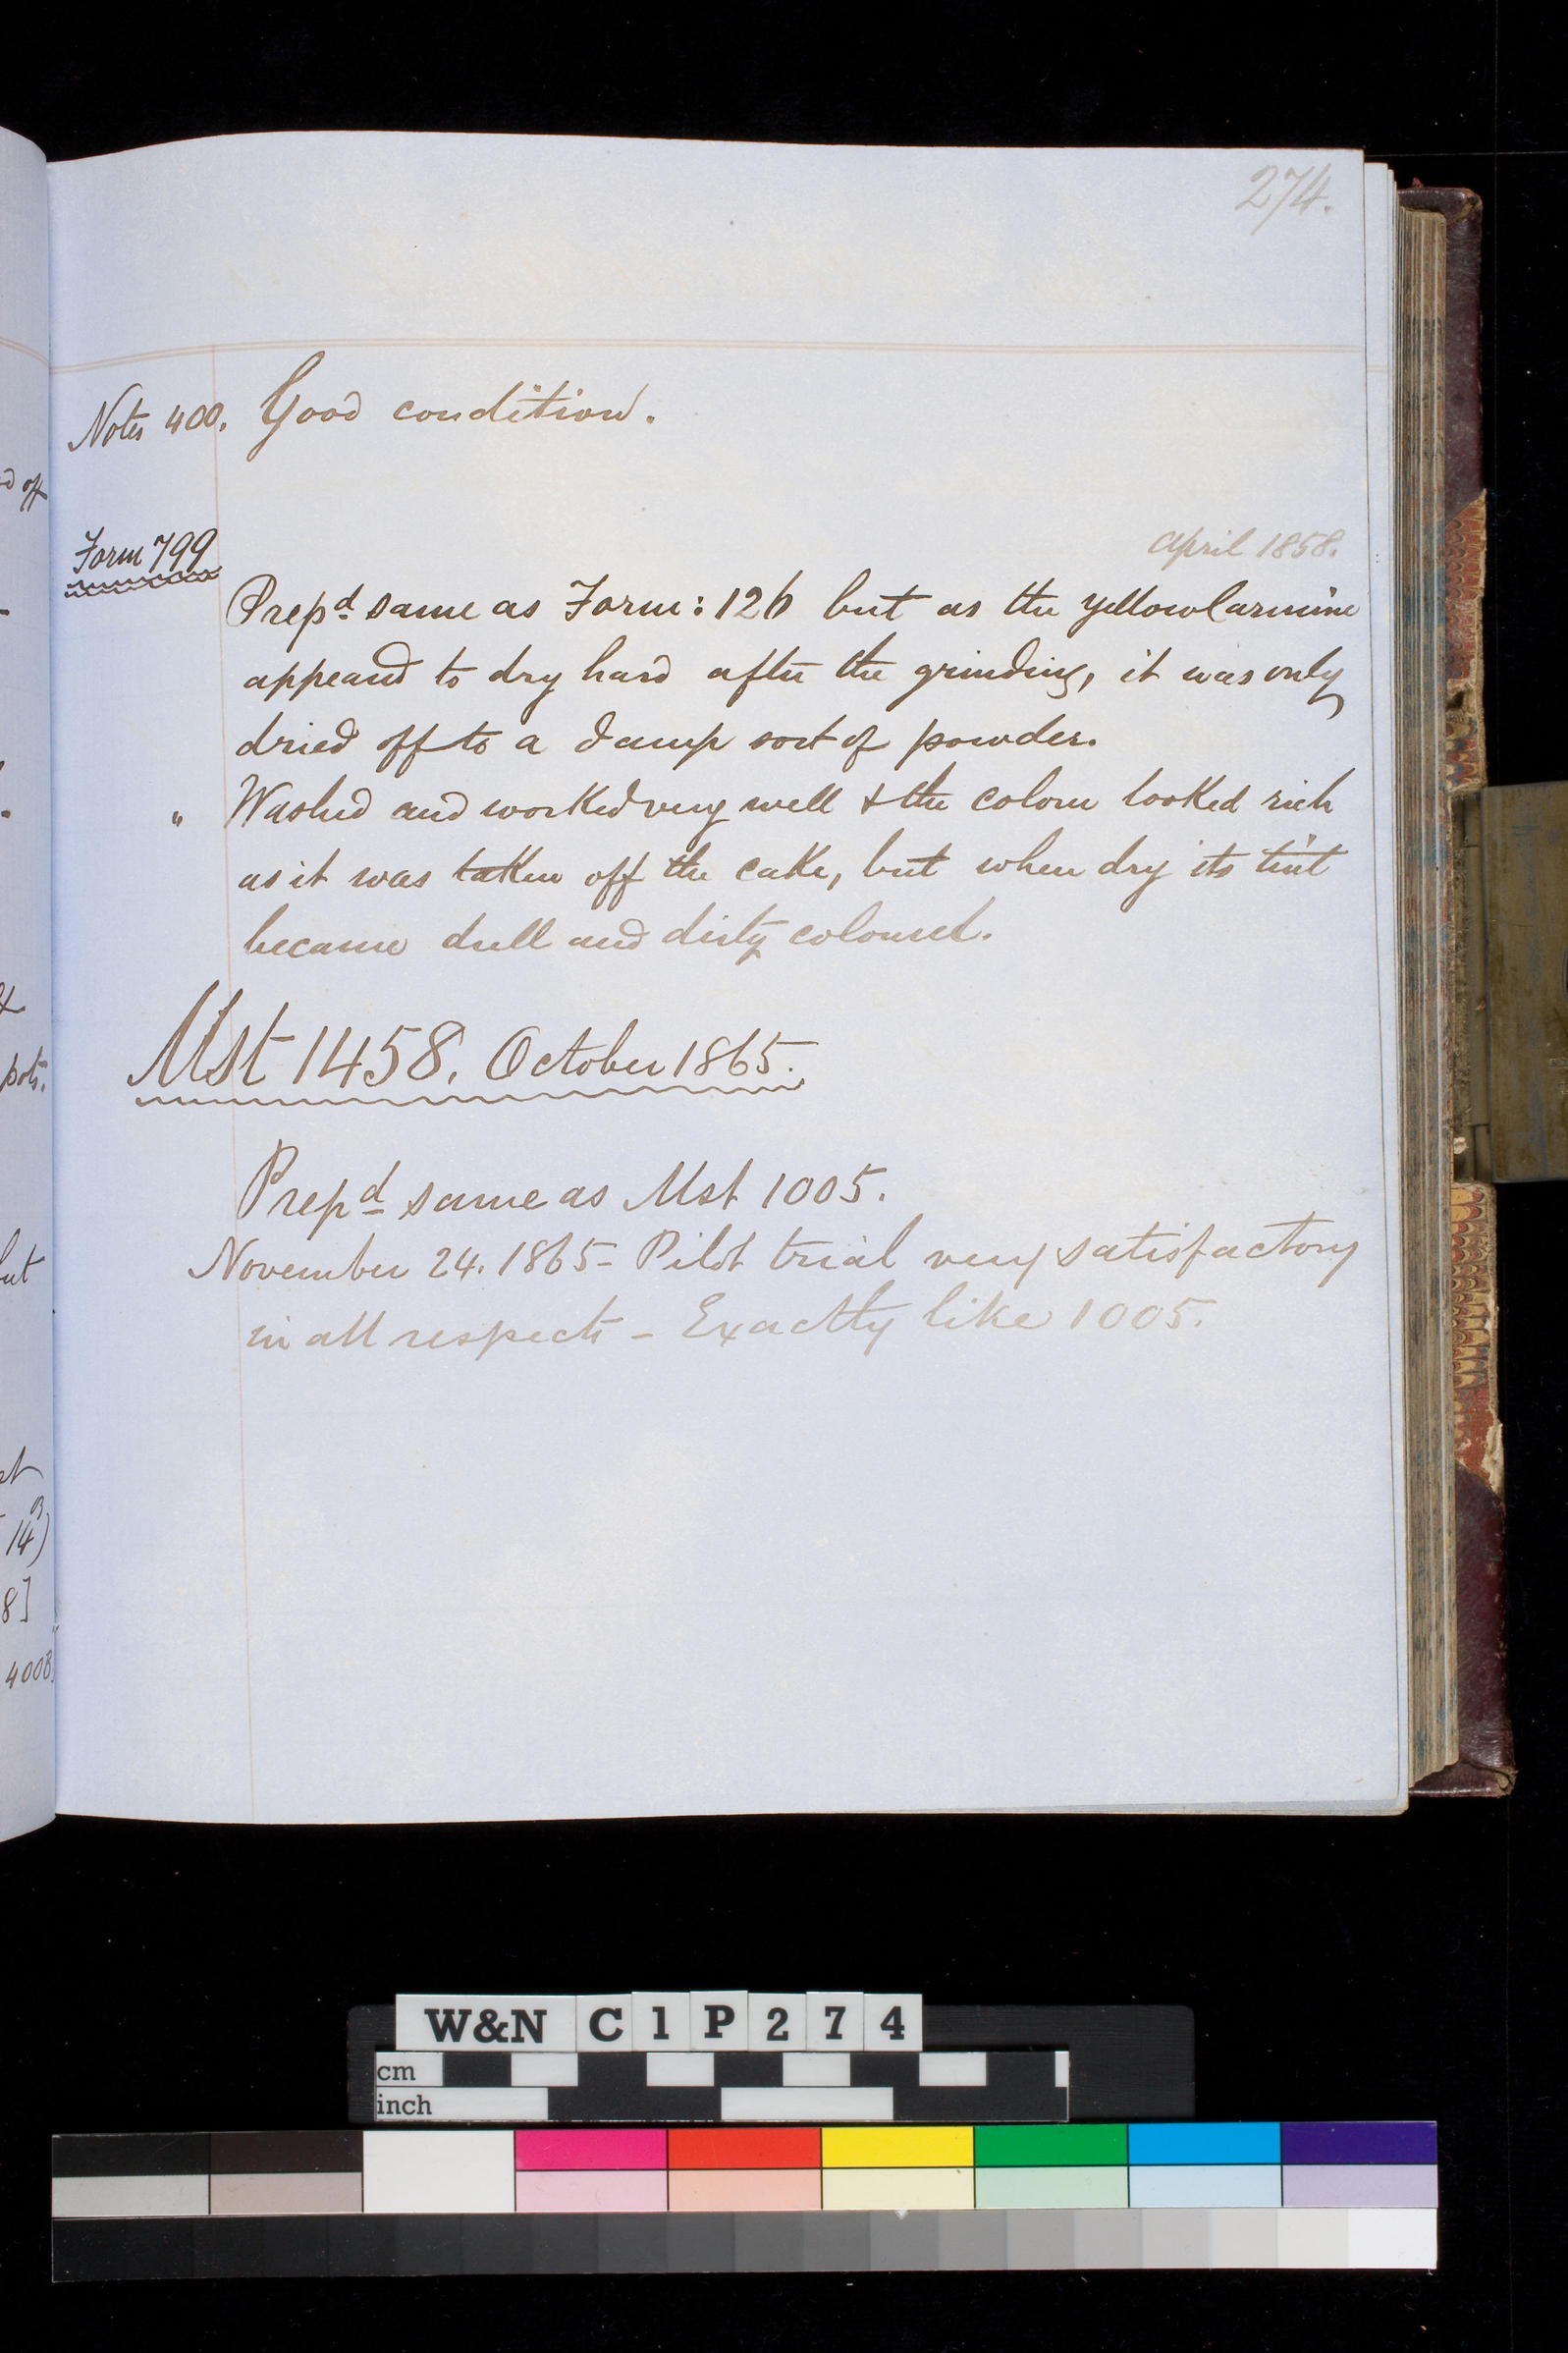 274.
Notes 400. Good condition.
April 1858.
Form 799
Prepd same as Form: 126 but as the yellow Carmine
appeared to dry hard after the grinding, it was only
dried off to a damp sort of powder.
" Washed and worked very well & the colour looked rich
as it was taken off the cake, but when dry its tint
became dull and dirty coloured.
Mst 1458. October 1865.
Prepd same as Mst 1005.
November 24. 1865 - Pilot trial very satisfactory
in all respects - Exactly like 1005.
off
pots.
but
14)
8]
400B
W&N C1P274
cm
inch